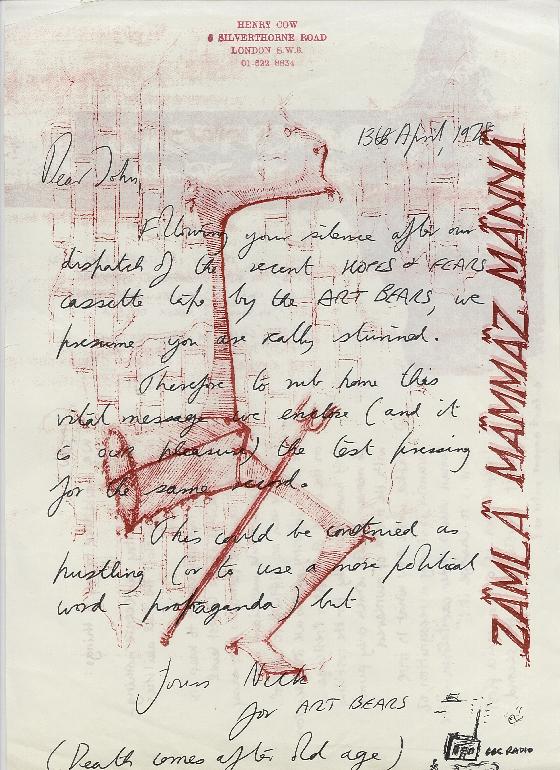 HENRY COW
6 SILVERTHORNE ROAD
LONDON S.W.8.
01-622 8834
136B April, 1978
Dear John,
Following your silence after our
dispatch of the recent HOPES & FEARS
cassette tape by the ART BEARS, we
presume you are really stunned.
Therefore to rub home this
vital message we enclose (and it
is our pleasure) the test pressing
for the same record.
This could be construed as
hustling (or to use a more political
word - propaganda) but
Yours Nick
for ART BEARS
(Death comes after old age)
BBC RADIO
ZAMLA MAMMAZ MANNA